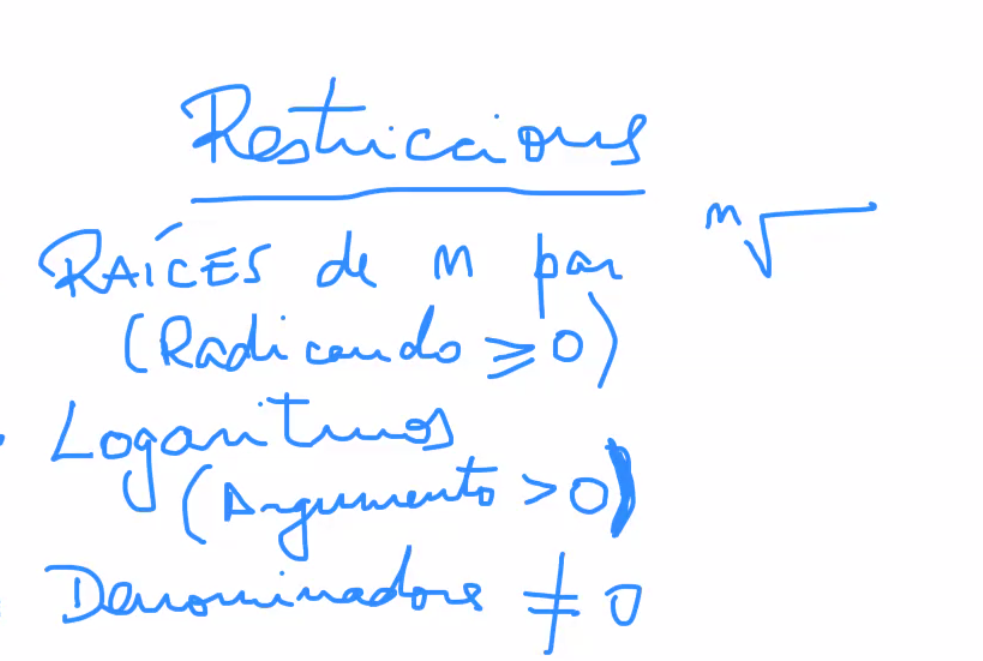 Restricciones
RAÍCES de n par
n√
(Radicando ≥ 0)
Logaritmos
(Argumento > 0)
Denominadores ≠ 0